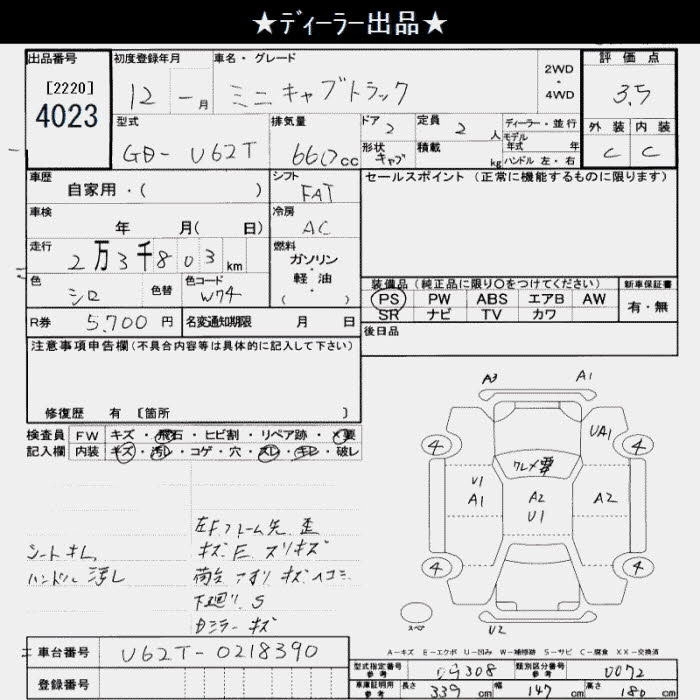 ★ディーラー出品★
出品番号 初度登録年月 車名・グレード 2WD・4WD 評価点
[2220] 4023 12 - 月 ミニキャブトラック 3.5
型式 排気量 ドア 2 定員 2 人 ディーラー・並行 外装 内装
モデル年式 年
GD-U62T 660cc 形状 キャブ 積載 kg ハンドル 左・右 C C
車歴 シフト セールスポイント (正常に機能するものに限ります)
自家用・( ) FAT
車検 冷房
年 月( 日) AC
走行 燃料
2万3千803km ガソリン・軽油
色 色替 色コード ( )
シロ W74
装備品 (純正品に限り○をつけてください) 新車保証書
PS PW ABS エアB AW 有・無
SR ナビ TV カワ
R券 5,700円 名変通知期限 月 日
後日品
注意事項申告欄(不具合内容等は具体的に記入して下さい)
修復歴 有 [箇所 ]
検査員 FW キズ・飛石・ヒビ割・リペア跡・×要
記入欄 内装 キズ・汚レ・コゲ・穴・スレ・キレ・破レ
A3 A1
4 UA1 4
ワレメ要
U1 A1 A2 U1 A2
4 4
スペア U2
左Fフレーム先 歪
シートキレ キズ E スリキズ
ハンドル汚レ 荷台 アオリ キズ ヘコミ
下廻り S
左ミラーキズ
A-キズ E-エクボ U-凹み W-補修跡 S-サビ C-腐食 XX-交換済
車台番号 U62T-0218390
登録番号
型式指定番号 参考 09308 類別区分番号 参考 0072
車庫証明用 参考 長さ 339cm 幅 147cm 高さ 180cm